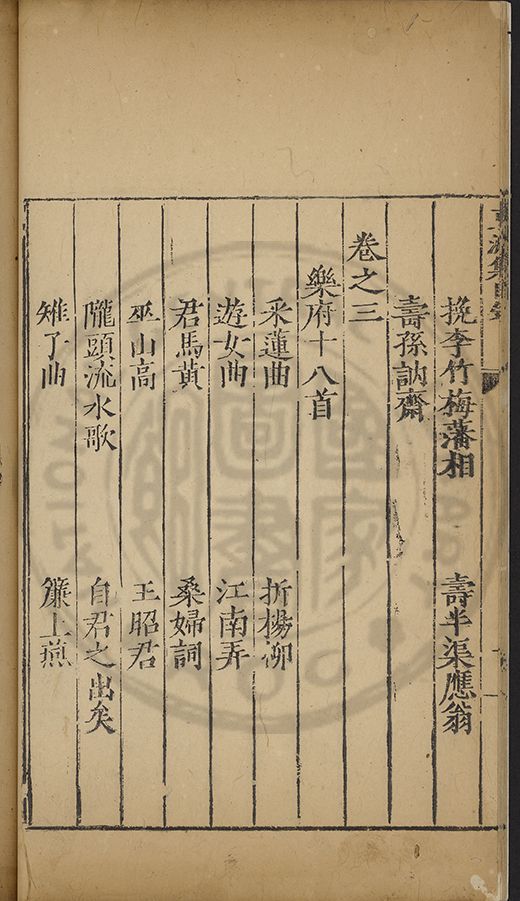 挽李竹梅藩相　壽半渠應翁
壽孫訥齋
卷之三
樂府十八首
采蓮曲　折楊柳
遊女曲　江南弄
君馬黃　桑婦詞
巫山高　王昭君
隴頭流水歌　自君之出矣
雉子曲　簾上燕